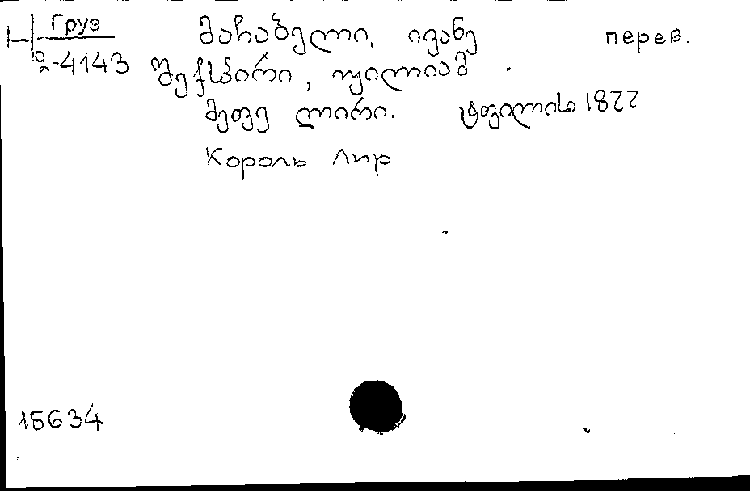 Груз მაჩაბელი, ივანე перев.
2-4143 შექსპირი, უილიამ.
მეფე ლირი. ტფილისი 1877
Король Лир
15634